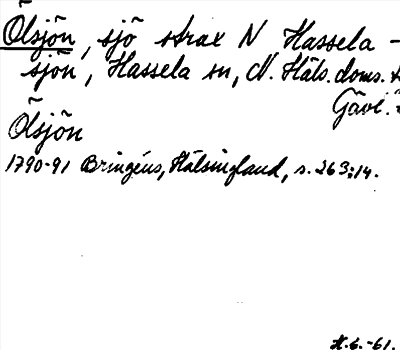 Ölsjön, sjö strax N Hassela-
sjön, Hassela sn, N. Häls. doms.
Gävl.
Ölsjön
1790-91 Bringéus, Hälsingland, s. 263:14.
H.6.-61.